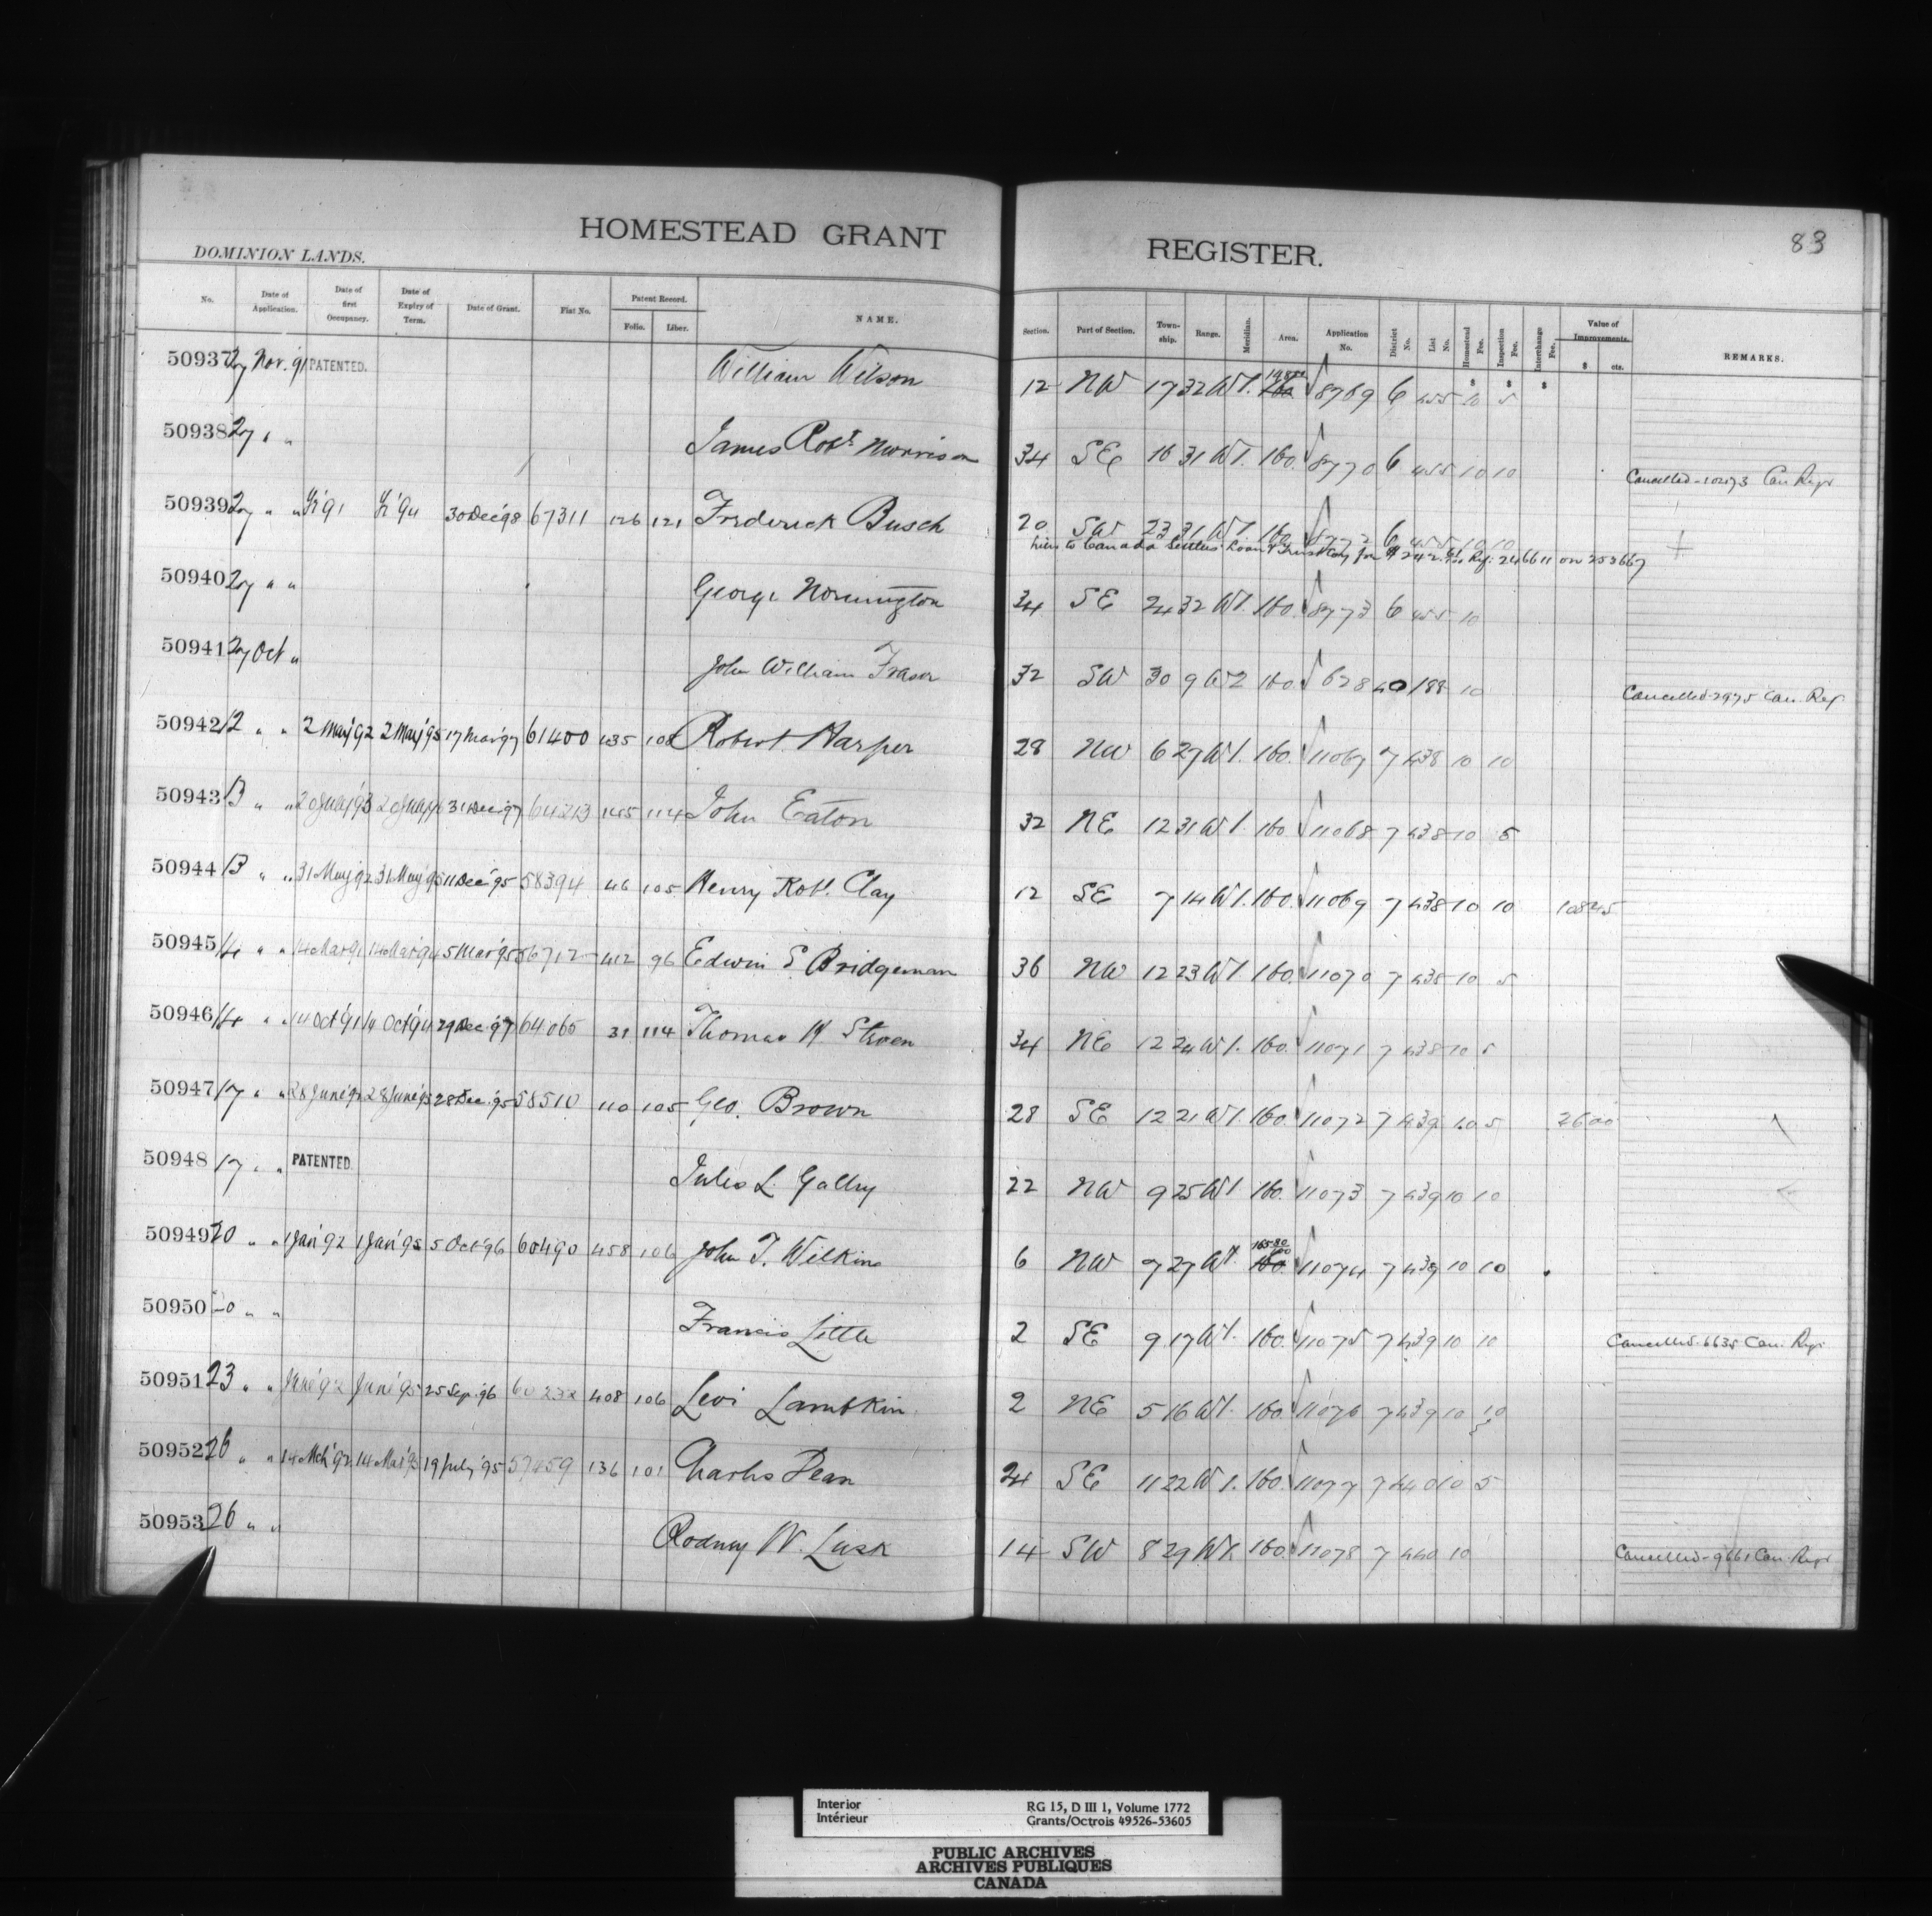 HOMESTEAD GRANT REGISTER. 83
DOMINION LANDS.
No. Date of Application. Date of first Occupancy. Date of Expiry of Term. Date of Grant. Fiat No. Patent Record. Folio. Liber. NAME. Section. Part of Section. Town-ship. Range. Meridian. Area. Application No. District No. List No. Homestead Fee. Inspection Fee. Interchange Fee. Value of Improvements. $ cts. REMARKS.
50937 27 Nov. 91 PATENTED. William Wilson 12 NW 17 32 W1. 160 8769 6 455 10 5
50938 27 " " James Robt. Morrison 34 SE 16 31 W1. 160. 8770 6 455 10 10 Cancelled-10273 Can Regr
50939 27 " " 30 Dec '98 67311 126 121 Frederick Busch 20 SW 23 31 W1. 160 8772 6 455 10 10
Lien to Canada Settlers Loan & Trust Coy for $242. Ref: 246611 on 253667
50940 27 " " George Normington 34 SE 24 32 W1. 160. 8773 6 455 10
50941 27 Oct " John William Fraser 32 SW 30 9 W2 160 628 40 188 10 Cancelled-2975 Can. Reg
50942 12 " " 2 May '92 2 May '95 17 Mar '97 61400 435 108 Robert Harper 28 NW 6 27 W1. 160. 11067 7 438 10 10
50943 13 " " 20 July '93 20 July '96 31 Dec '97 64213 145 114 John Eaton 32 NE 12 31 W1. 160 11068 7 438 10 5
50944 13 " " 31 May '92 31 May '95 11 Dec '95 58394 46 105 Henry Robt. Clay 12 SE 7 14 W1. 160. 11069 7 438 10 10 108 45
50945 14 " " 14 Mar '91 14 Mar '94 5 Mar '95 56712 412 96 Edwin S. Bridgeman 36 NW 12 23 W1 160. 11070 7 438 10 5
50946 14 " " 14 Oct '91 14 Oct '94 29 Dec '97 64065 31 114 Thomas H Stroen 34 NE 12 24 W1. 160. 11071 7 438 10 5
50947 17 " " 28 June '92 28 June '95 28 Dec. '95 58510 110 105 Geo. Brown 28 SE 12 21 W1. 160. 11072 7 439 10 5 26 00
50948 17 " " PATENTED. Jules L. Gallry 22 NW 9 25 W1 160. 11073 7 439 10 10
50949 20 " " 1 Jan '92 1 Jan '95 5 Oct '96 60490 458 106 John T. Wilkins 6 NW 7 27 W1. 165 80/100 160. 11074 7 439 10 10
50950 20 " " Francis Little 2 SE 9 17 W1. 160. 11075 7 439 10 10 Cancelled-6635 Can. Regr
50951 23 " " June '92 June '95 25 Sep. '96 60232 408 106 Levi Lambkin 2 NE 5 16 W1. 160. 11076 7 439 10 10
50952 26 " " 14 Mch '92 14 Mar '95 19 July '95 57459 136 101 Charles Dean 24 SE 11 22 W1. 160. 11077 7 440 10 5
50953 26 " " Rodney W. Lusk 14 SW 8 29 W1. 160. 11078 7 440 10 Cancelled-9661 Can. Regr
Interior
Intérieur
RG 15, D III 1, Volume 1772
Grants/Octrois 49526-53605
PUBLIC ARCHIVES
ARCHIVES PUBLIQUES
CANADA